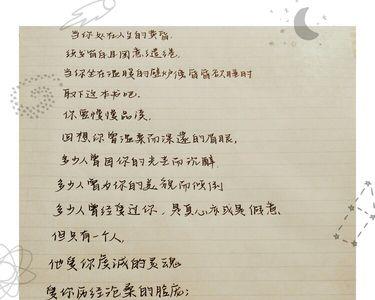 当你处在人生的黄昏
当你坐在温暖的壁炉傍昏昏欲睡时
取下这本书吧.
你要慢慢品读,
回想你曾温柔而深邃的眉眼,
多少人曾因你的光芒而沉醉
多少人曾为你的美貌而倾倒
多少人曾经爱过你,是真心亦或是假意.
但只有一个人,
他爱你虔诚的灵魂
爱你历经沧桑的脸庞;